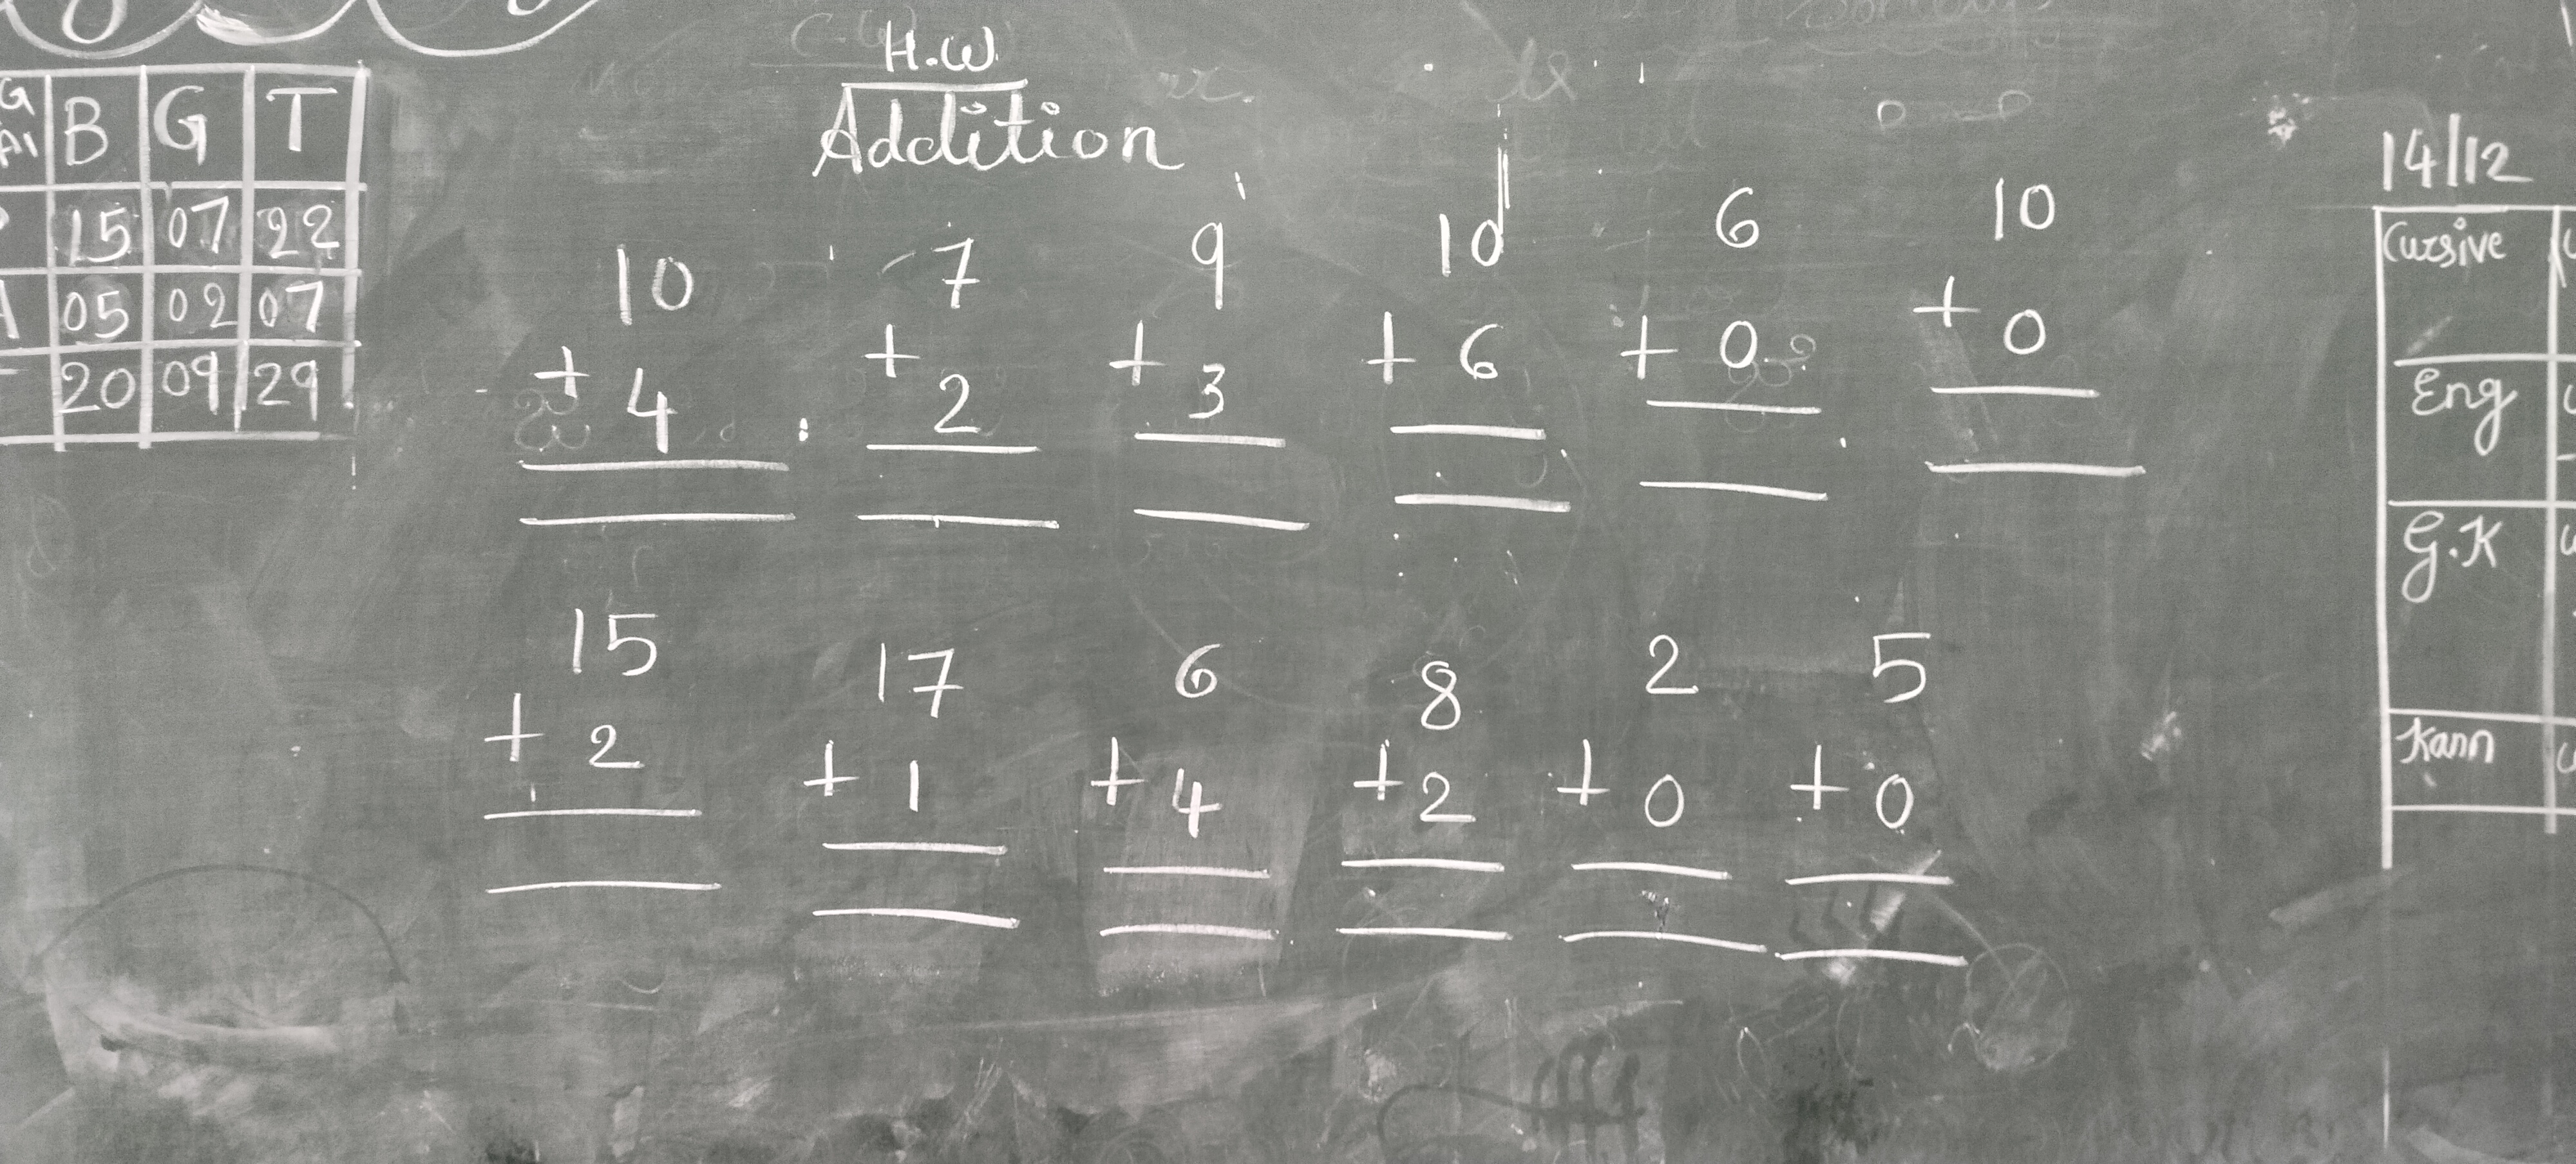 H.W
Addition
G B G T
15 07 22
A 05 02 07
20 09 29
10 7 9 10 6 10
+ 4 + 2 + 3 + 6 + 0 + 0
15 17 6 8 2 5
+ 2 + 1 + 4 + 2 + 0 + 0
14/12
Cursive
Eng
G.K
Kann